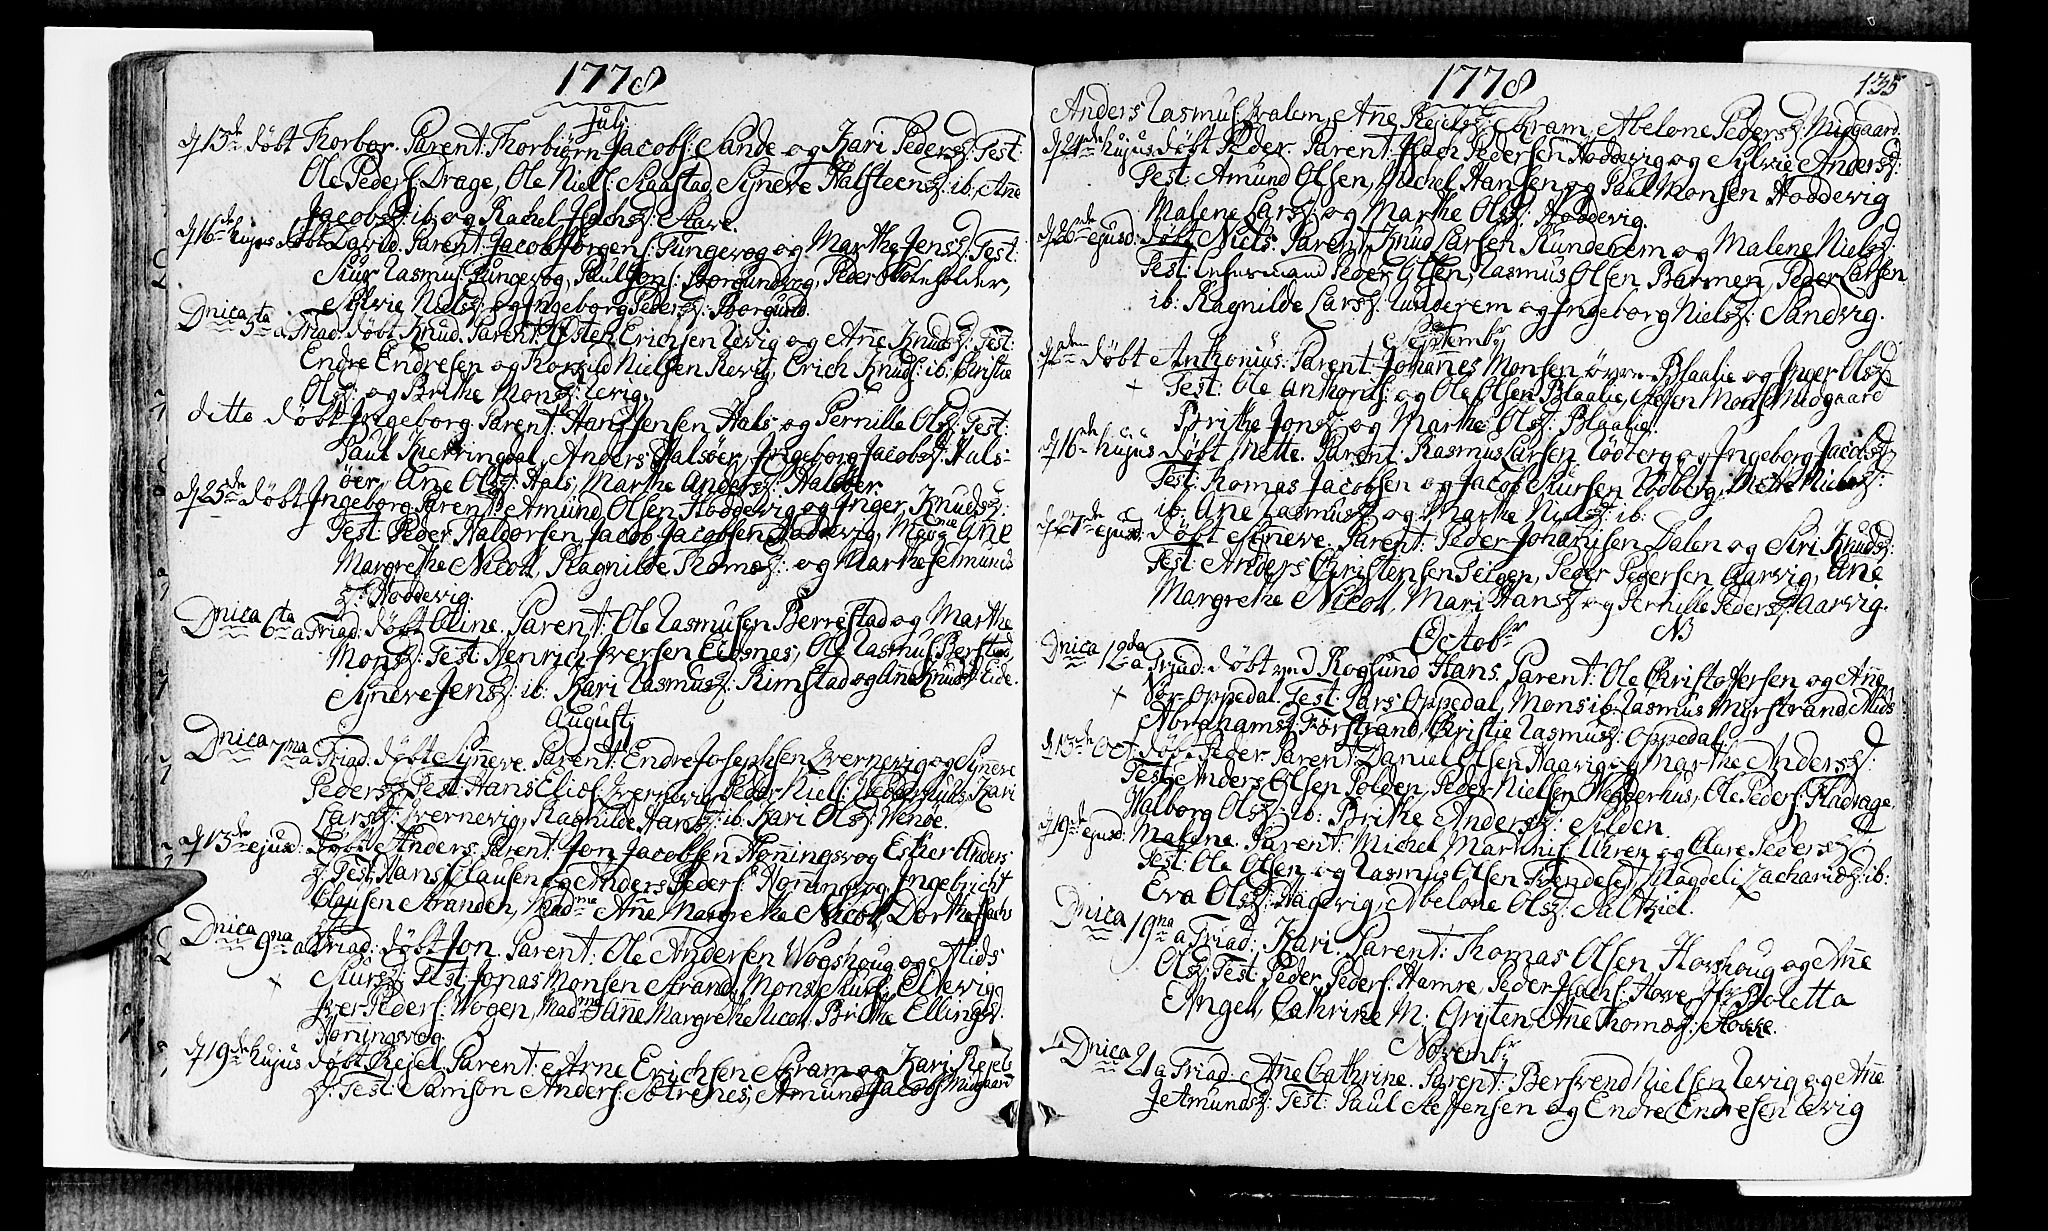 1778
July
d 13de døbt Thorbor. Parent: Thorbiørn Jacobs: Sande og Kari Pedersd: Test:
Ole Peders: Drage, Ole Niels: Skaastad, Synneve Halsteensd: ib: Ane
Jacobsd: ib: og Rachel Isachsd: Skare.
d 16de hujus døbt David. Parent: Jacob Jørgens: Pungevog og Marthe Jensd: Test:
Siur Rasmus: Pungevog, Paul Jons: Borgundvog, Peder
Silvie Nielsd: og Ingeborg Pedersd: Borgund.
Dnica 5ta a Triad: døbt Knud. Parent: Østen Erichsen Revig og Anne Knudsd: Test:
Endre Endresen og Korsud Nielsen Revig, Erich Knuds: ib: Christie
Olsd: og Brithe Monsd: Revig.
dette døbt Ingeborg Parent: Hans Jensen Hals og Pernille Olsd: Test:
Paul Skerringdal, Anders Halsøer, Ingeborg Jacobsd: Hals-
øer, Ane Olsd: Hals, Marthe Andersd: Halsøer.
d 25de døbt Ingeborg Parent: Amund Olsen Hoddevig og Inger Knudsd:
Test: Peder Haldorsen, Jacob Jacobsen Hoddevig, Ane
Margrethe Nicoll, Ragnilde Thomesd: og Marthe Selmunds
d: Hoddevig.
Dnica 6ta a Triad: døbt Oline. Parent: Ole Rasmusen Berrestad og Marthe
Monsd: Test: Henrich Iversen Eldsnes, Ole Rasmus: Berstad,
Synneve Jensd: ib: Kari Rasmusd: Rimstad og Anne Knudsd: Eide.
August
Dnica 7ma a Triad: døbt Synneve. Parent: Endre Josephsen Ivernevig og Synneve
Pedersd: Test: Hans Elios: Ivernevig, Peder Niels: Kari
Larsd: Ivernevig, Ragnilde Hansd: ib: Kari Olsd: Wenøe.
d 13de ejusd: døbt Anders. Parent: Jon Jacobsen Honningsvog Esther Anders
d: Test: Hans Clausen og Anders Peders: Honningsvog, Ingebricht
Clausen Stranden, Madme Ane Margrethe Nicoll, Dorthe Isachs
d:
Dnica 9na a Triad: døbt Jon. Parent: Ole Andersen Wogshoug og Alids
Siursd: Test: Jonas Monsen Strand, Mons Siurs: Eldevig
Iver Peders: Wogen, Madme Anne Margrethe Nicoll, Brithe Ellingsd.
Honingsvog.
d 19de hujus døbt Rejel. Parent: Arne Erichsen Skram og Kari Rejels
d: Test: Samson Anders: Sotrenes, Amund Jacobs: Midgaard
1778
135
Anders Rasmus: Anne Rejelsd: Skram, Abelone Pedersd: Midgaard.
d 21de hujus døbt Peder. Parent: Isach Pedersen Hoddevig og Sylvie Andersd:
Test: Amund Olsen, Michel Hansen og Paul Monsen Hoddevig
Malene Larsd: og Marthe Olsd: Hoddevig.
d 26de ejusd: døbt Niels. Parent: Knud Larsen Runderem og Malene Nielsd:
Test: Lensmand Peder Olsen, Rasmus Olsen Barmen, Peder Larsen
ib: Ragnilde Larsd: Runderem og Ingeborg Nielsd: Sandvig.
Septembr
døbt Anthonius. Parent: Johannes Monsen øvre Blaalie og Inger Olsd:
Test: Ole Anthonis: og Ole Olsen Blaalie, Mons: Midgaard
Brithe Jonsd: og Marthe Olsd: Blaalie.
d 16de hujus døbt Mette. Parent: Rasmus Larsen Rødberg og Ingeborg Jacobsd:
Test: Thomas Jacobsen og Jacob Siursen Rødberg, Mette
ib: Ane Rasmusd: og Marthe Nielsd: ib:
d 27de ejusd: døbt Synneve. Parent: Peder Johansen Dalen og Siri Knudsd:
Test: Anders Christensen Teigen, Peder Pedersen Aarvig, Ane
Margrethe Nicoll, Mari Hansd: og Pernille Pedersd: Aarvig.
Octobr NB
Dnica 12da a Triad: døbt ved Roglund Hans. Parent: Ole Christophersen og Anne
Nor-Oppedal. Test: Lars Oppedal, Mons ib: Rasmus Myrstrand, Alids
Abrahamsd: Forstrand, Christie Rasmusd: Oppedal.
d 13de Oct: døbt Peder. Parent: Daniel Olsen Haavig og Marthe Andersd:
Test: Anders Olsen Solden, Peder Nielsen Wedderhus, Ole Peders: Fladrage,
Walborg Olsd: ib: Brithe Andersd: Solden.
d 19de ejusd: Malene. Parent: Michel Marthis: Uuren og Clare Pedersd:
Test: Ole Olsen og Rasmus Olsen Frendesett, Magdeli Zacharisd: ib:
Eva Olsd: Hagevig, Abelone Olsd: Saltkiel.
Dnica 19na a Triad: Kari. Parent: Thomas Olsen Hovshoug og Ane
Olsd: Test: Peder Peders: Hamre, Peder Isachs: Hovsett, Jfr: Boletta
Angel, Cathrine M: Gristen, Ane Thomasd:
Novembr
Dnica 21 a Triad: Ane Cathrine. Parent: Bersvend Nielsen Revig og Ane
Amundsd: Test: Paul Steffensen og Endre Endresen Revig